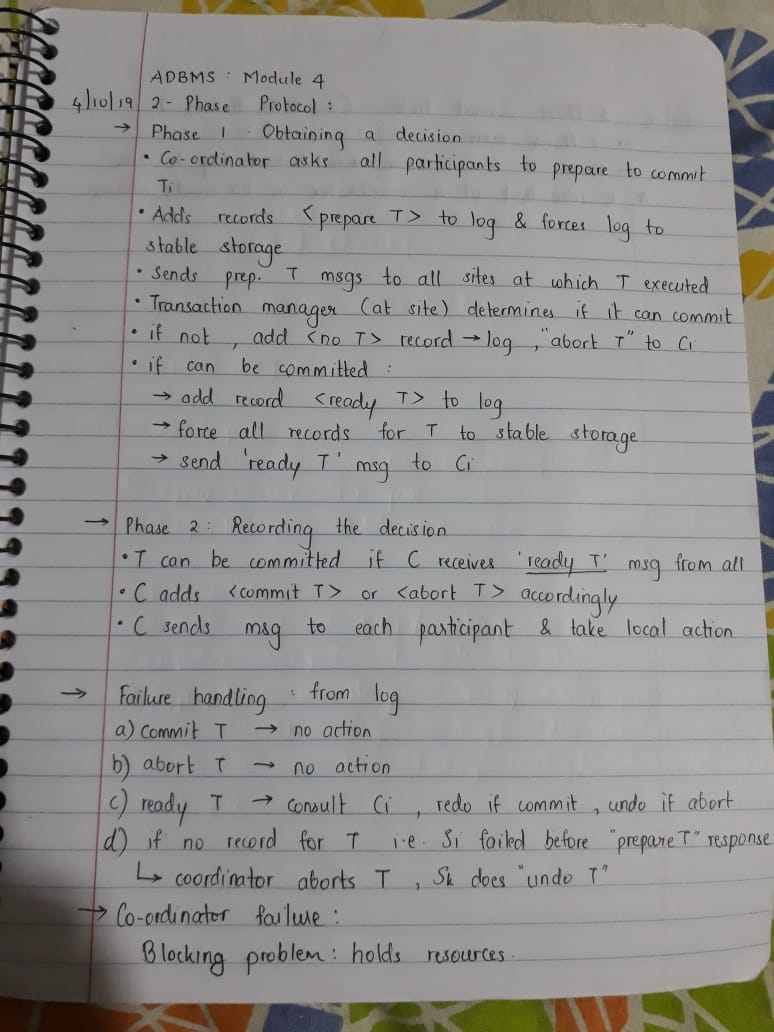 ADBMS : Module 4
4/10/19 2- Phase Protocol :
→ Phase 1 : Obtaining a decision
• Co-ordinator asks all participants to prepare to commit
Ti
• Adds records <prepare T> to log & forces log to
stable storage
• Sends prep. T msgs to all sites at which T executed
• Transaction manager (at site) determines if it can commit
• if not, add <no T> record → log, "abort T" to Ci
• if can be committed :
→ add record <ready T> to log
→ force all records for T to stable storage
→ send 'ready T' msg to Ci
→ Phase 2 : Recording the decision
• T can be committed if C receives 'ready T' msg from all
• C adds <commit T> or <abort T> accordingly
• C sends msg to each participant & take local action
→ Failure handling : from log
a) commit T → no action
b) abort T → no action
c) ready T → consult Ci, redo if commit, undo if abort
d) if no record for T i.e. Si failed before "prepare T" response
↳ coordinator aborts T, Sk does "undo T"
→ Co-ordinator failure :
Blocking problem : holds resources.